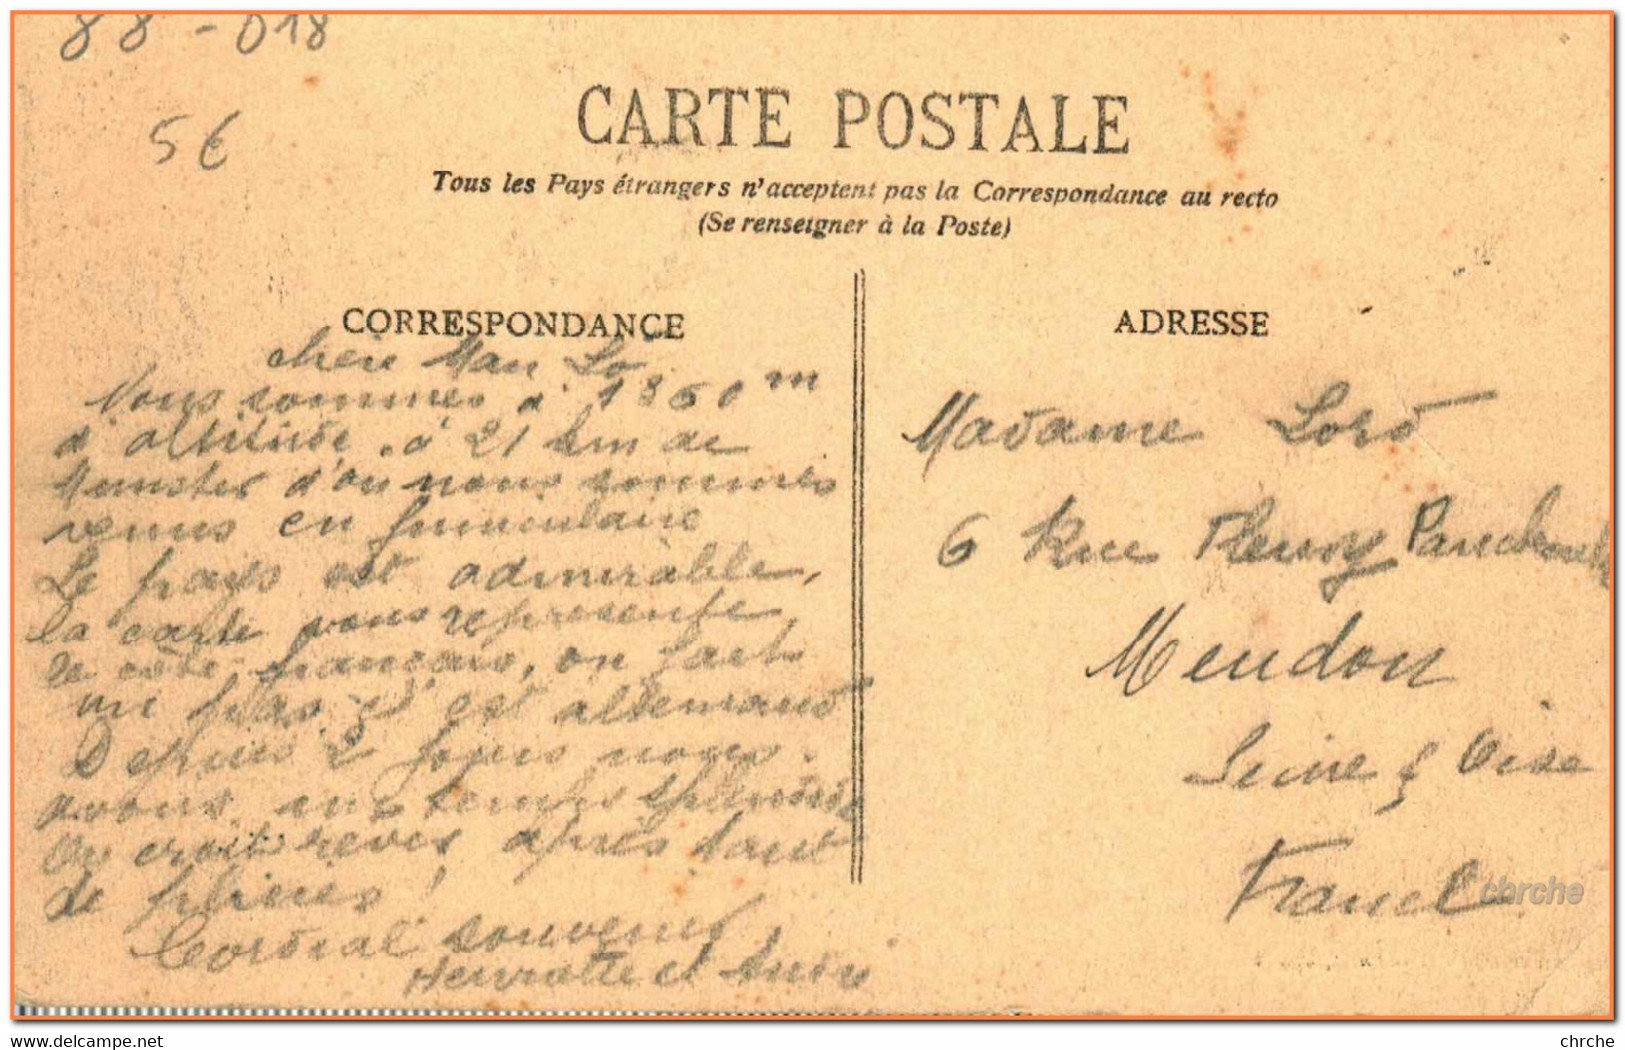 88-018
5€
CARTE POSTALE
Tous les Pays étrangers n'acceptent pas la Correspondance au recto
(Se renseigner à la Poste)
CORRESPONDANCE
chère Man Lo
Nous sommes à 1360 m
d'altitude. à 21 km de
Munster d'où nous sommes
venus en funiculaire
Le pays est admirable,
la carte vous représente
le côté français, on fait
un pas & c'est allemand
Depuis 2 jours nous
avons un temps splendide
On croit rêver après tant
de pluies !
Cordial souvenir,
Henriette et
ADRESSE
Madame Lord
6 Rue Fleury
Meudon
Seine & Oise
France
chrche
www.delcampe.net
chrche